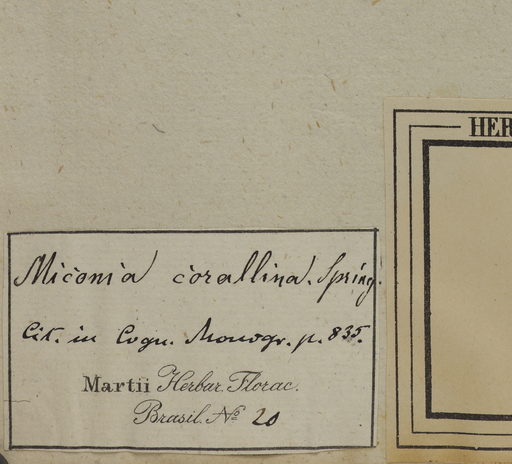 HER
Miconia corallina. Spring.
Cit. in Cogn. Monogr. p. 835.
Martii Herbar. Florae.
Brasil. No 20